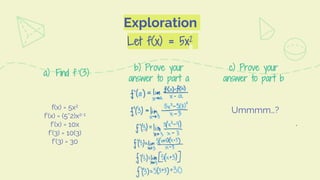 Exploration
Let f(x) = 5x²
a) Find f'(3)
f(x) = 5x²
f'(x) = (5*2)x²⁻¹
f'(x) = 10x
f'(3) = 10(3)
f'(3) = 30
b) Prove your
answer to part a
f'(a) = lim x→a f(x)-f(a) / x-a
f'(3) = lim x→3 5x²-5(3)² / x-3
f'(3) = lim x→3 5(x²-9) / x-3
f'(3) = lim x→3 5(x+3)(x-3) / x-3
f'(3) = lim x→3 [5(x+3)]
f'(3) = 5(3+3) = 30
c) Prove your
answer to part b
Ummmm..?